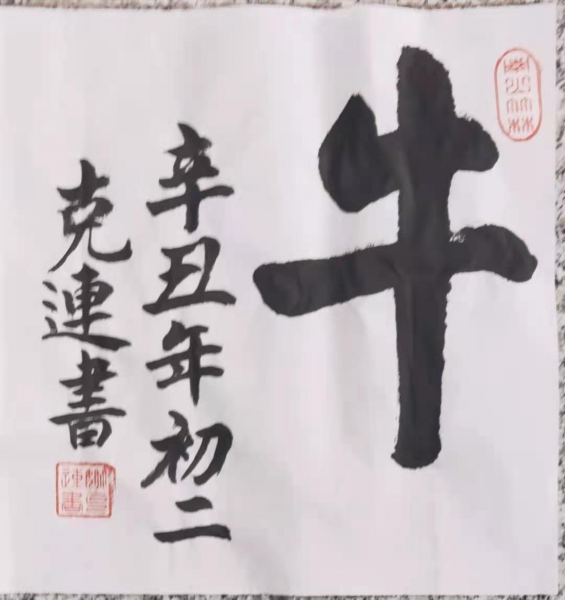 牛
辛丑年初二
克連書